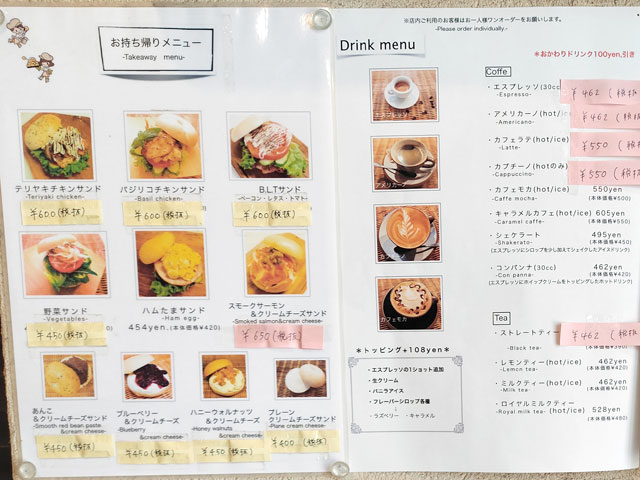 お持ち帰りメニュー
-Takeaway menu-
テリヤキチキンサンド
-Teriyaki chicken-
¥600(税抜)
バジリコチキンサンド
-Basil chicken-
¥600(税抜)
B.L.Tサンド
-ベーコン・レタス・トマト-
¥600(税抜)
野菜サンド
-Vegetables-
¥450(税抜)
ハムたまサンド
-Ham egg-
454yen.(本体価格¥420)
スモークサーモン
&クリームチーズサンド
-Smoked salmon&cream cheese-
¥650(税抜)
あんこ
&クリームチーズサンド
-Smooth red bean paste
&cream cheese-
¥450(税抜)
ブルーベリー
&クリームチーズ
-Blueberry
&cream cheese-
¥450(税抜)
ハニーウォルナッツ
&クリームチーズ
-Honey walnuts
&cream cheese-
¥450(税抜)
プレーン
クリームチーズサンド
-Plane cream cheese-
¥400(税抜)
※店内ご利用のお客様はお一人様ワンオーダーをお願いします。
-Please order individually.-
Drink menu
*おかわりドリンク100yen,引き
アメリカーノ
カフェラテ
カフェモカ
Coffe
・エスプレッソ(30cc)
-Espresso-
¥462(税抜
・アメリカーノ(hot/ice)
-Americano-
¥462(税抜
・カフェラテ(hot/ice)
-Latte-
¥550(税抜
・カプチーノ(hotのみ)
-Cappuccino-
¥550(税抜
・カフェモカ(hot/ice) 550yen
-Caffe mocha- (本体価格¥500)
・キャラメルカフェ(hot/ice) 605yen
-Caramel caffe- (本体価格¥550)
・シェケラート 495yen
-Shakerato- (本体価格¥450)
(エスプレッソにシロップを少し加えてシェイクしたアイスドリンク)
・コンパンナ(30cc) 462yen
-Con panna- (本体価格¥420)
(エスプレッソにホイップクリームをトッピングしたホットドリンク)
Tea
・ストレートティー
-Black tea-
¥462(税抜
・レモンティー(hot/ice) 462yen
-Lemon tea- (本体価格¥420)
・ミルクティー(hot/ice) 462yen
-Milk tea- (本体価格¥420)
・ロイヤルミルクティー
-Royal milk tea- (hot/ice) 528yen
(本体価格¥480)
*トッピング+108yen*
・エスプレッソの1ショット追加
・生クリーム
・バニラアイス
・フレーバーシロップ各種
↓
・ラズベリー ・キャラメル